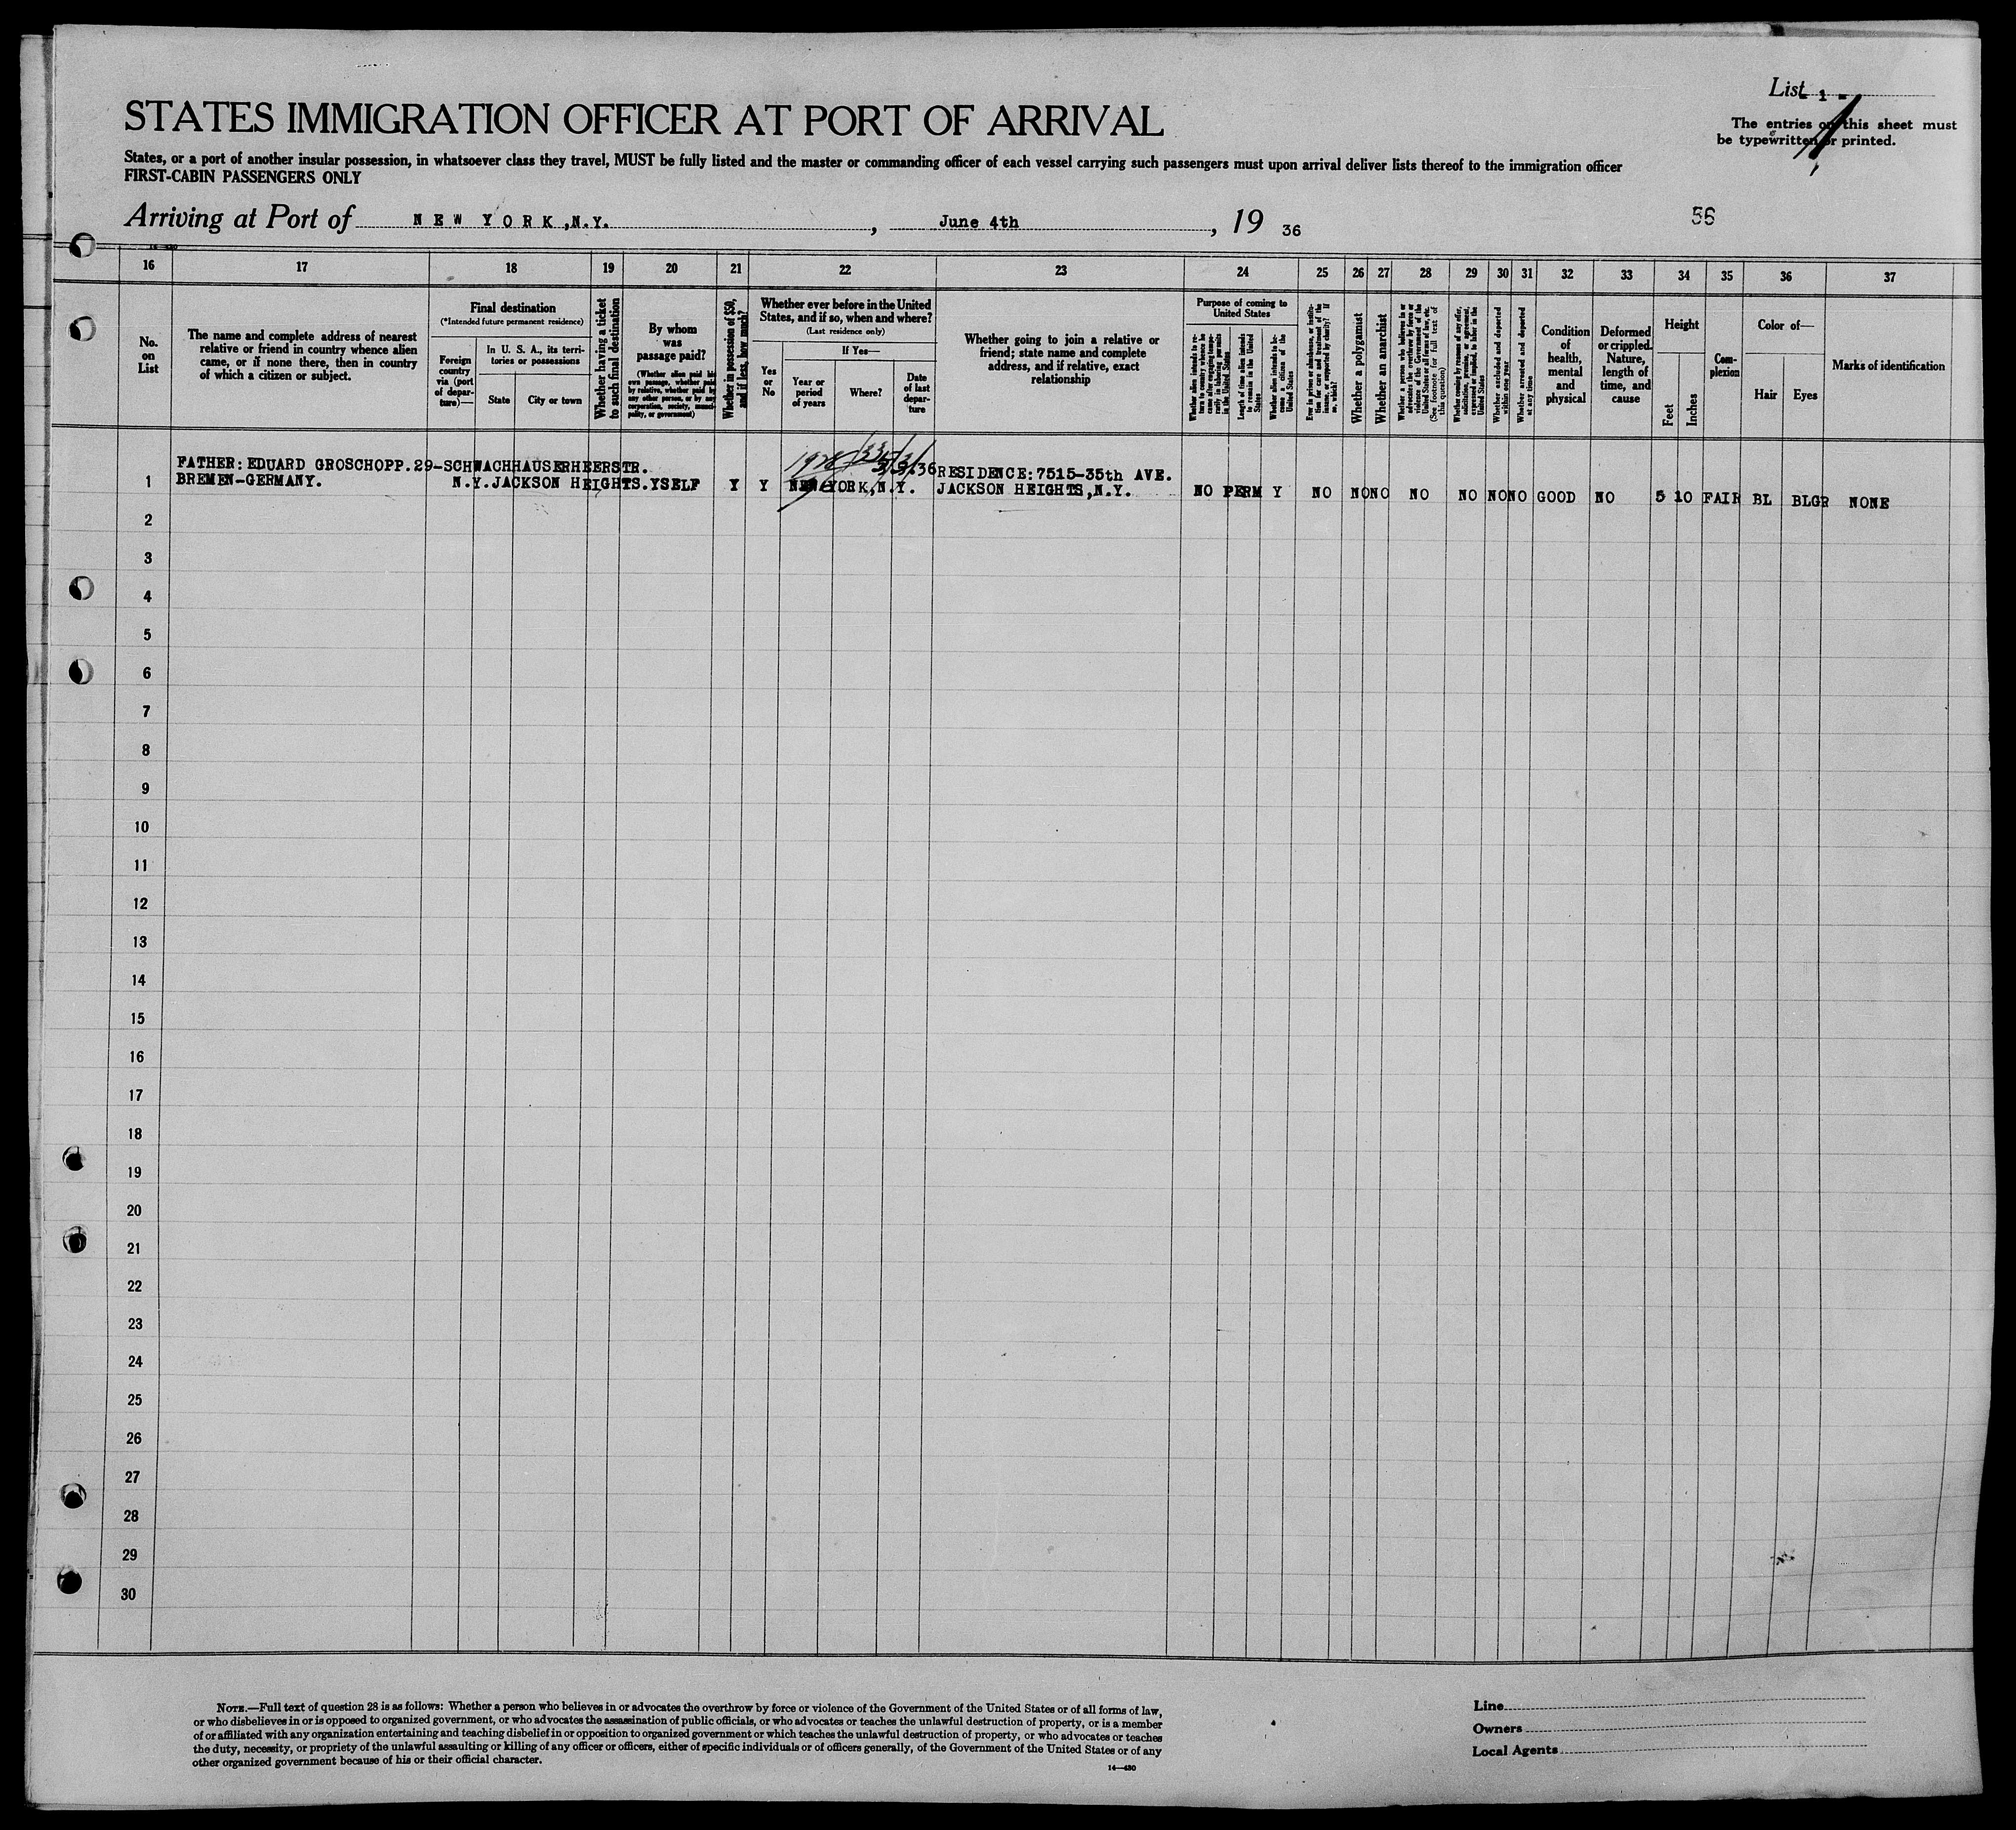 List - 1 -
STATES IMMIGRATION OFFICER AT PORT OF ARRIVAL
The entries on this sheet must
be typewritten or printed.
States, or a port of another insular possession, in whatsoever class they travel, MUST be fully listed and the master or commanding officer of each vessel carrying such passengers must upon arrival deliver lists thereof to the immigration officer
FIRST-CABIN PASSENGERS ONLY
Arriving at Port of NEW YORK,N.Y., June 4th, 19 36
56
16 17 18 19 20 21 22 23 24 25 26 27 28 29 30 31 32 33 34 35 36 37
No. on List
The name and complete address of nearest
relative or friend in country whence alien
came, or if none there, then in country
of which a citizen or subject.
Final destination
(*Intended future permanent residence)
Foreign country via (port of departure)—
In U. S. A., its territories or possessions
State
City or town
Whether having a ticket to such final destination
By whom was passage paid?
(Whether alien paid his own passage, whether paid by relative, whether paid by any other person, or by any corporation, society, municipality, or government)
Whether in possession of $50, and if less, how much?
Whether ever before in the United States, and if so, when and where?
(Last residence only)
Yes or No
If Yes—
Year or period of years
Where?
Date of last departure
Whether going to join a relative or
friend; state name and complete
address, and if relative, exact
relationship
Purpose of coming to United States
Whether alien intends to return to country whence he came after engaging temporarily in laboring pursuits in the United States
Length of time alien intends to remain in the United States
Whether alien intends to become a citizen of the United States
Ever in prison or almshouse, or institution for care and treatment of the insane, or supported by charity? If so, which?
Whether a polygamist
Whether an anarchist
Whether a person who believes in or advocates the overthrow by force or violence of the Government of the United States or all forms of law, etc. (See footnote for full text of this question)
Whether coming by reason of any offer, solicitation, promise, or agreement, expressed or implied, to labor in the United States
Whether excluded and deported within one year
Whether arrested and deported at any time
Condition of health, mental and physical
Deformed or crippled. Nature, length of time, and cause
Height
Feet
Inches
Complexion
Color of—
Hair
Eyes
Marks of identification
FATHER:EDUARD GROSCHOPP.29-SCHWACHHAUSERHEERSTR. 36 RESIDENCE:7515-35th AVE.
1 BREMEN-GERMANY. N.Y.JACKSON HEIGHTS.YSELF Y Y NEW YORK,N.Y. JACKSON HEIGHTS,N.Y. NO PERM Y NO NO NO NO NO NO NO GOOD NO 5 10 FAIR BL BLGR NONE
2
3
4
5
6
7
8
9
10
11
12
13
14
15
16
17
18
19
20
21
22
23
24
25
26
27
28
29
30
NOTE.—Full text of question 28 is as follows: Whether a person who believes in or advocates the overthrow by force or violence of the Government of the United States or of all forms of law,
or who disbelieves in or is opposed to organized government, or who advocates the assassination of public officials, or who advocates or teaches the unlawful destruction of property, or is a member
of or affiliated with any organization entertaining and teaching disbelief in or opposition to organized government or which teaches the unlawful destruction of property, or who advocates or teaches
the duty, necessity, or propriety of the unlawful assaulting or killing of any officer or officers, either of specific individuals or of officers generally, of the Government of the United States or of any
other organized government because of his or their official character.
14—430
Line
Owners
Local Agents